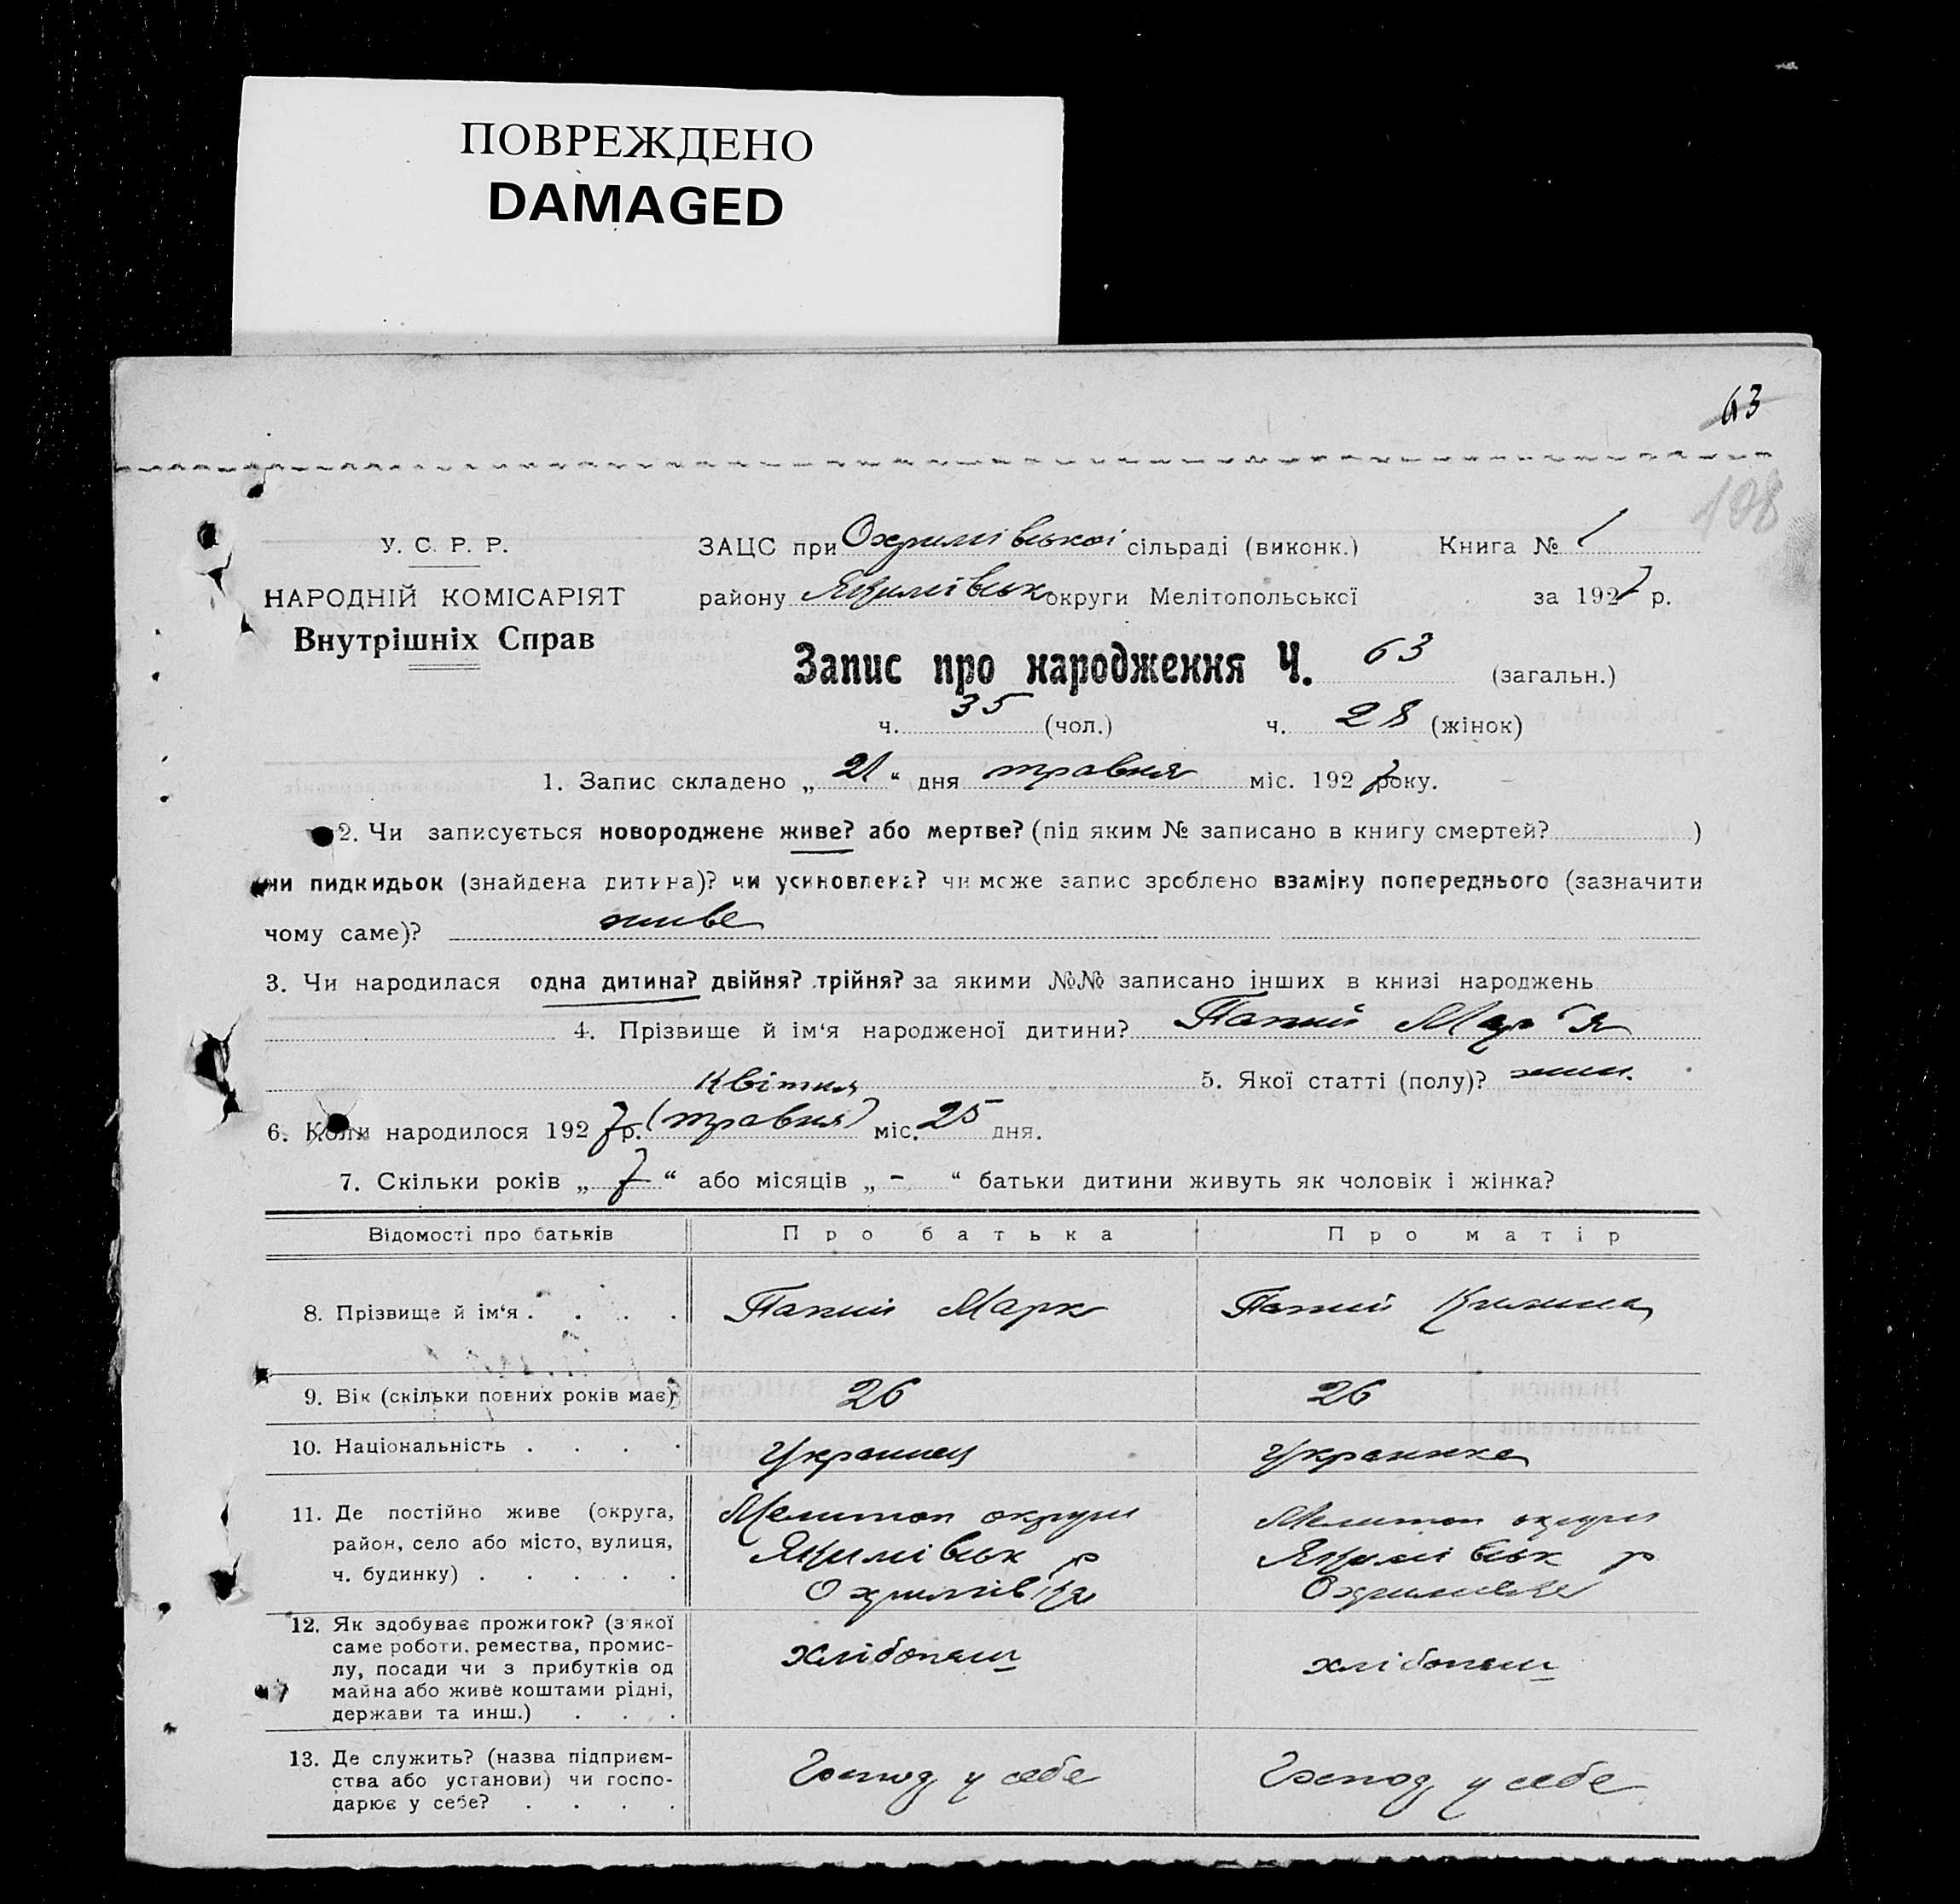 ПОВРЕЖДЕНО
DAMAGED
63
108
У. С. Р. Р.
НАРОДНІЙ КОМІСАРІЯТ
Внутрішніх Справ
ЗАЦС при Охримівської сільраді (виконк.) Книга № 1
району Якимівськ округи Мелітопольської за 1927 р.
Запис про народження Ч. 63 (загальн.)
ч. 35 (чол.) ч. 28 (жінок)
1. Запис складено „ 21 “ дня травня міс. 1927 року.
2. Чи записується новороджене живе? або мертве? (під яким № записано в книгу смертей? )
чи пидкидьок (знайдена дитина)? чи усиновлена? чи може запис зроблено взаміну попереднього (зазначити
чому саме)? живе
3. Чи народилася одна дитина? двійня? трійня? за якими №№ записано інших в книзі народжень
4. Прізвище й ім‘я народженої дитини? Папий Мар‘я
Квітня 5. Якої статті (полу)? жин.
6. Коли народилося 1927 р. (травня) міс. 25 дня.
7. Скільки років „ 7 “ або місяців „ - “ батьки дитини живуть як чоловік і жінка?
Відомості про батьків Про батька Про матір
8. Прізвище й ім‘я . . . . Папий Марк Папий Килина
9. Вік (скільки повних років має) 26 26
10. Національність . . . . Украинец Украинка
11. Де постійно живе (округа, Мелитоп округи Мелитоп округи
район, село або місто, вулиця, Якимівськ р Якимівськ р
ч. будинку) . . . . . Охримівка Охримовка
12. Як здобуває прожиток? (з якої
саме роботи, ремества, промис- хлібопаш хлібопаш
лу, посади чи з прибутків од
майна або живе коштами рідні,
держави та инш.) . . .
13. Де служить? (назва підприєм-
ства або установи) чи госпо- Господ у себе Господ у себе
дарює у себе? . . . .